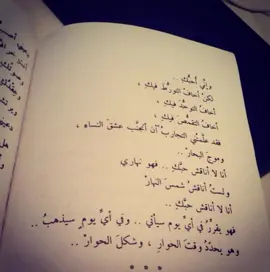 وإنّي أحبّكِ ..
لكنْ أخافُ التورُّطَ فيكِ ،
أخافُ التوحُّدَ فيكِ ،
أخافُ التقمُّصَ فيكِ ،
فقد علّمتْني التجاربُ أن أتجنَّبَ عشقَ النساء ،
وموجَ البحارْ ..
أنا لا أناقش حبَّكِ .. فهو نهاري
ولستُ أناقشُ شمسَ النهارْ
أنا لا أناقش حبَّكِ ..
فهو يقررُ في أيِّ يومٍ سيأتي .. وفي أيِّ يومٍ سيذهبُ ..
وهو يحدّدُ وقتَ الحوارِ ، وشكلَ الحوارْ ..
* * *